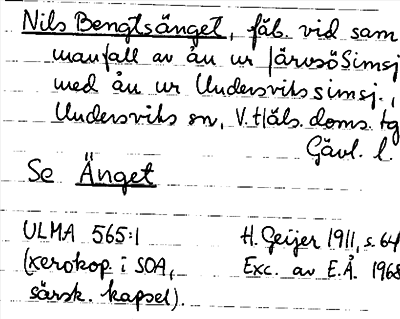 Nils Bengtsänget, fäb. vid sam
manfall av ån ur JärvsöSimsj
med ån ur Undersvikssimsj.,
Undersviks sn, V.Häls. doms. tg
Gävl. l.
Se Änget
ULMA 565:1 H. Geijer 1911, s. 64
(xerokop i SOA, Exc. av E.Å. 1968
särsk. kapsel).